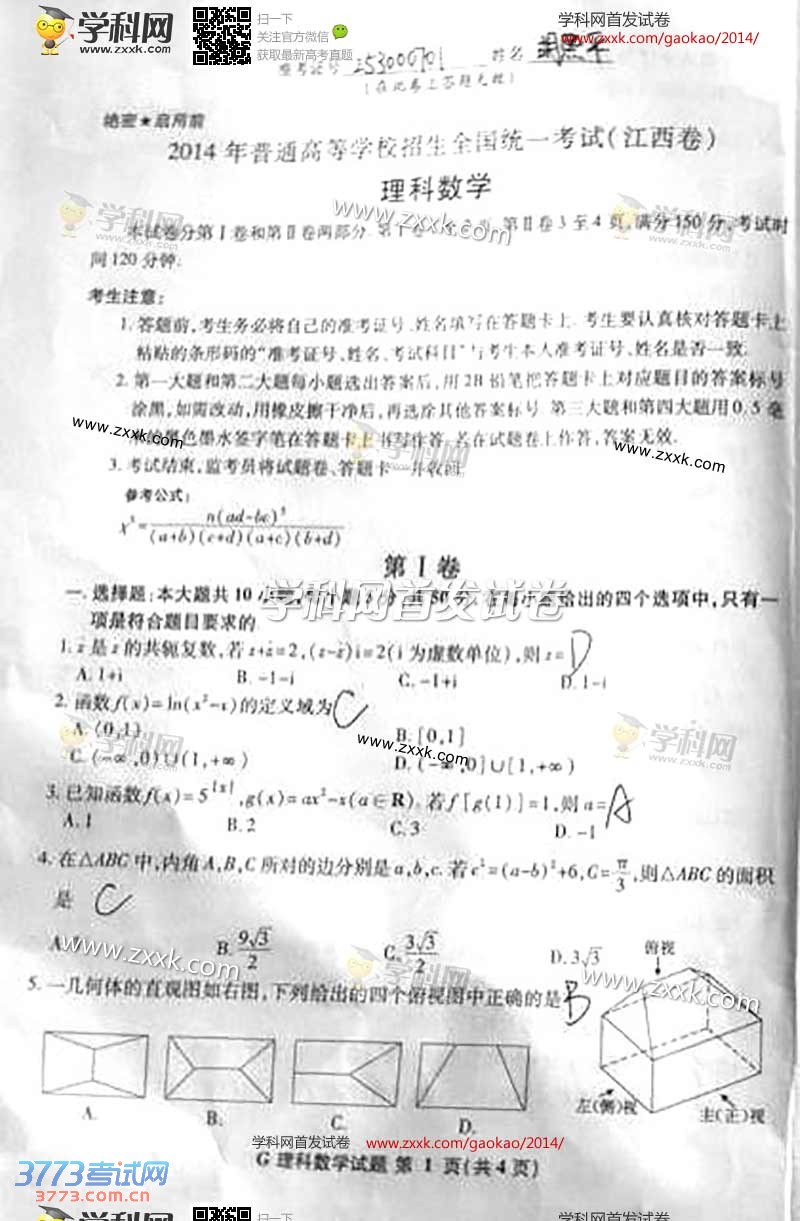 学科网 www.zxxk.com
扫一下
关注官方微信
获取最新高考真题
学科网首发试卷
www.zxxk.com/gaokao/2014/
姓名
(在此卷上答题无效)
绝密★启用前
2014年普通高等学校招生全国统一考试(江西卷)
理科数学
本试卷分第Ⅰ卷和第Ⅱ卷两部分.第Ⅰ卷 第Ⅱ卷3至4页,满分150分,考试时
间120分钟.
考生注意:
1.答题前,考生务必将自己的准考证号、姓名填写在答题卡上.考生要认真核对答题卡上
粘贴的条形码的“准考证号、姓名、考试科目”与考生本人准考证号、姓名是否一致.
2.第一大题和第二大题每小题选出答案后,用2B铅笔把答题卡上对应题目的答案标号
涂黑,如需改动,用橡皮擦干净后,再选涂其他答案标号.第三大题和第四大题用0.5毫
米的黑色墨水签字笔在答题卡上书写作答.若在试题卷上作答,答案无效.
3.考试结束,监考员将试题卷、答题卡一并收回.
参考公式:
x²=n(ad-bc)²/(a+b)(c+d)(a+c)(b+d)
第Ⅰ卷
一.选择题:本大题共10小题, 给出的四个选项中,只有一
项是符合题目要求的.
1. z̄是z的共轭复数,若z+z̄=2,(z-z̄)i=2(i为虚数单位),则z= D
A.1+i B.-1-i C.-1+i D.1-i
2.函数f(x)=ln(x²-x)的定义域为 C
A.(0,1) B.[0,1]
C.(-∞,0)∪(1,+∞) D.(-∞,0]∪[1,+∞)
3.已知函数f(x)=5^|x|,g(x)=ax²-x(a∈R).若f[g(1)]=1,则a= A
A.1 B.2 C.3 D.-1
4.在△ABC中,内角A,B,C所对的边分别是a,b,c.若c²=(a-b)²+6,C=π/3,则△ABC的面积
是 C
A. B.9√3/2 C.3√3/2 D.3√3
5.一几何体的直观图如右图,下列给出的四个俯视图中正确的是 B
俯视
左(侧)视 主(正)视
A. B. C. D.
学科网首发试卷 www.zxxk.com/gaokao/2014/
G 理科数学试题 第1页(共4页)
3773考试网
3773.com.cn
学科网
扫一下
学科网首发试卷